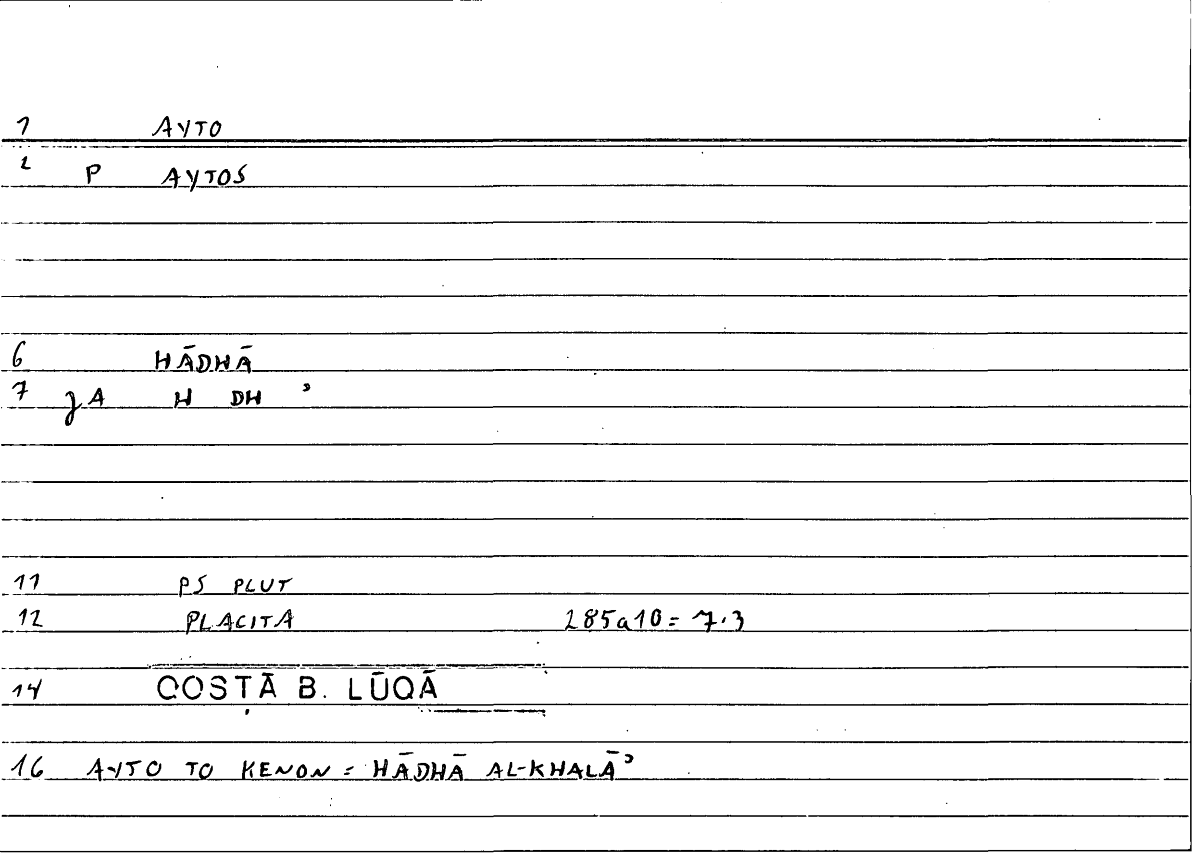 1 AYTO
2 P AYTOS
6 HĀDHĀ
7 JA H DH ʾ
11 PS PLUT
12 PLACITA 285a10 = 7.3
14 QOSṬĀ B. LŪQĀ
16 AYTO TO KENON = HĀDHĀ AL-KHALĀʾ